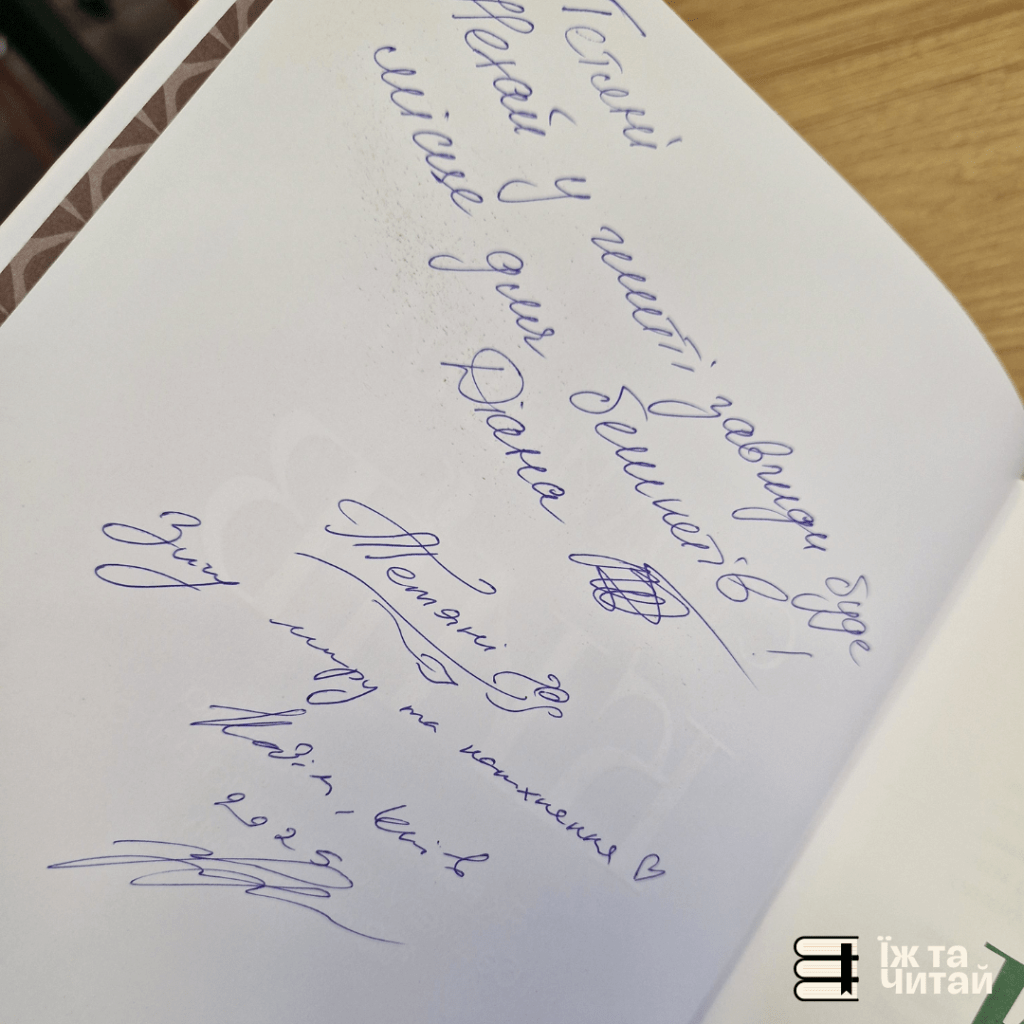 Тетяні
Нехай у житті завжди буде
місце для бенкетів!
Діана
Тетяні
Зичу миру та натхнення ♡
Київ
2025
Їж та
Читай